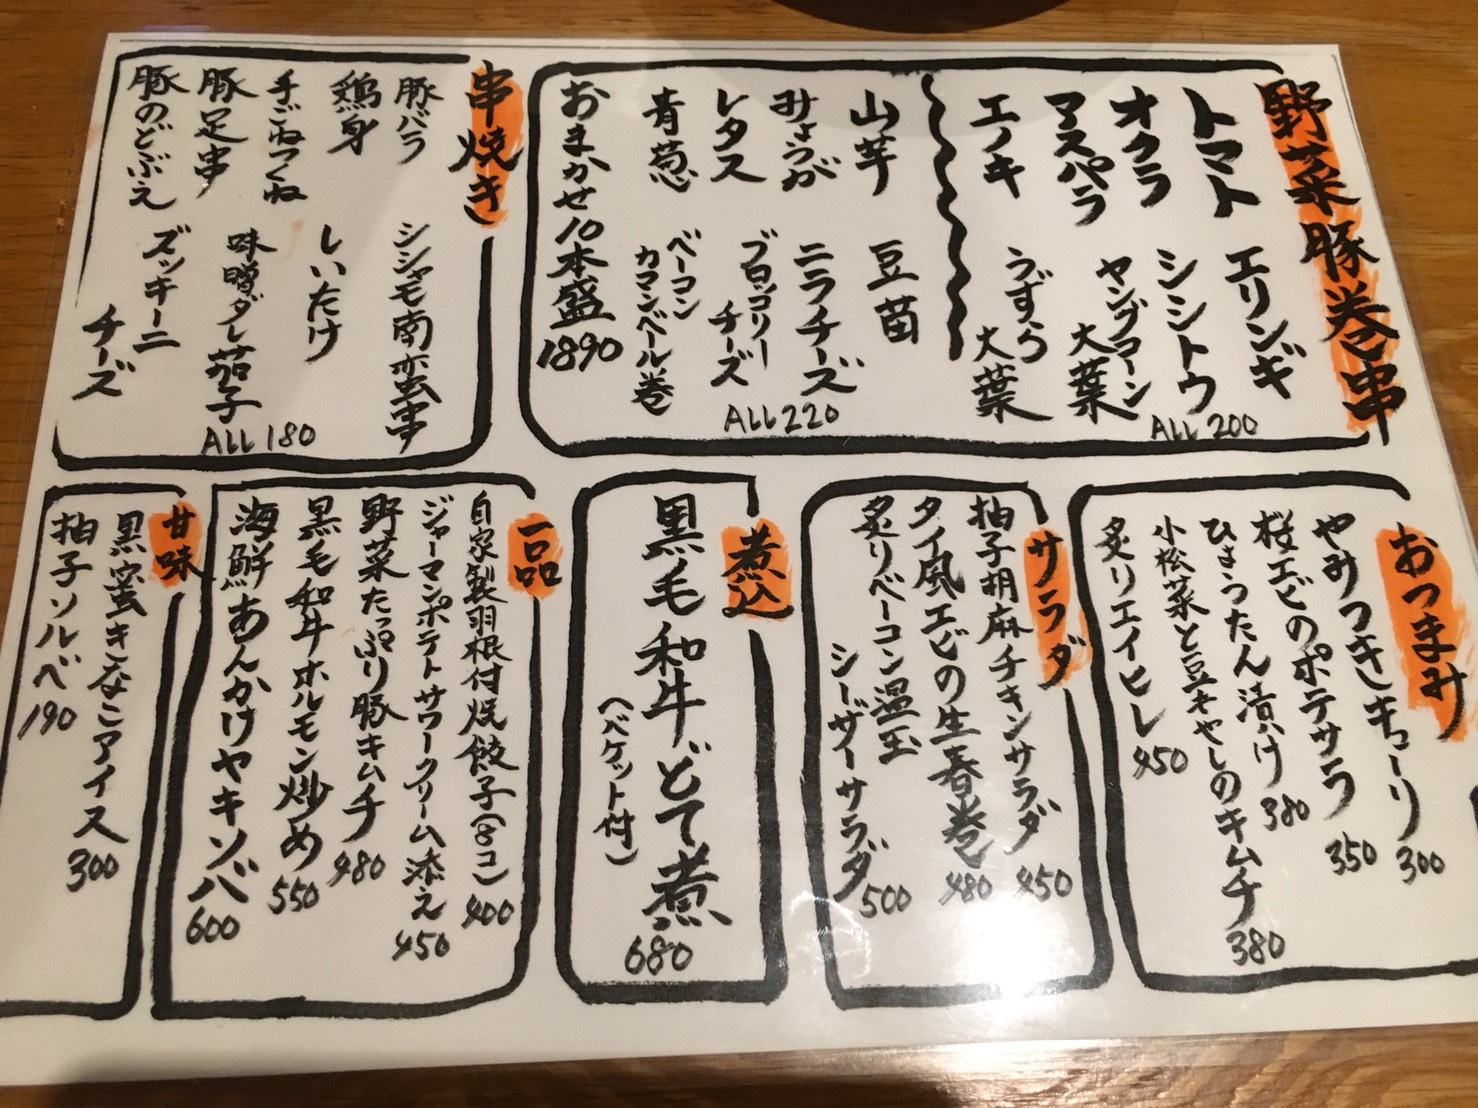 野菜豚巻串
トマト
エリンギ
オクラ
シシトウ
アスパラ
ヤングコーン
大葉
エノキ
うずら
大葉
ALL 200
山芋
豆苗
みょうが
ニラチーズ
レタス
ブロッコリー
チーズ
青葱
ベーコン
カマンベール巻
ALL 220
おまかせ10本盛 1890
串焼き
豚バラ
シシャモ南蛮串
鶏身
しいたけ
手ごねつくね
味噌ダレ茄子
豚足串
ズッキーニ
チーズ
豚のどぶえ
ALL 180
おつまみ
やみつきキューリ 300
桜エビのポテサラ 350
ひょうたん漬け 380
小松菜と豆もやしのキムチ 380
炙りエイヒレ 450
サラダ
柚子胡麻チキンサラダ 450
タイ風エビの生春巻 480
炙りベーコン温玉
シーザーサラダ 500
煮込
黒毛和牛どて煮 680
(バケット付)
一品
自家製羽根付焼餃子(8コ) 400
ジャーマンポテトサワークリーム添え 450
野菜たっぷり豚キムチ 480
黒毛和牛ホルモン炒め 550
海鮮あんかけヤキソバ 600
甘味
黒蜜きなこアイス 300
柚子ソルベ 190